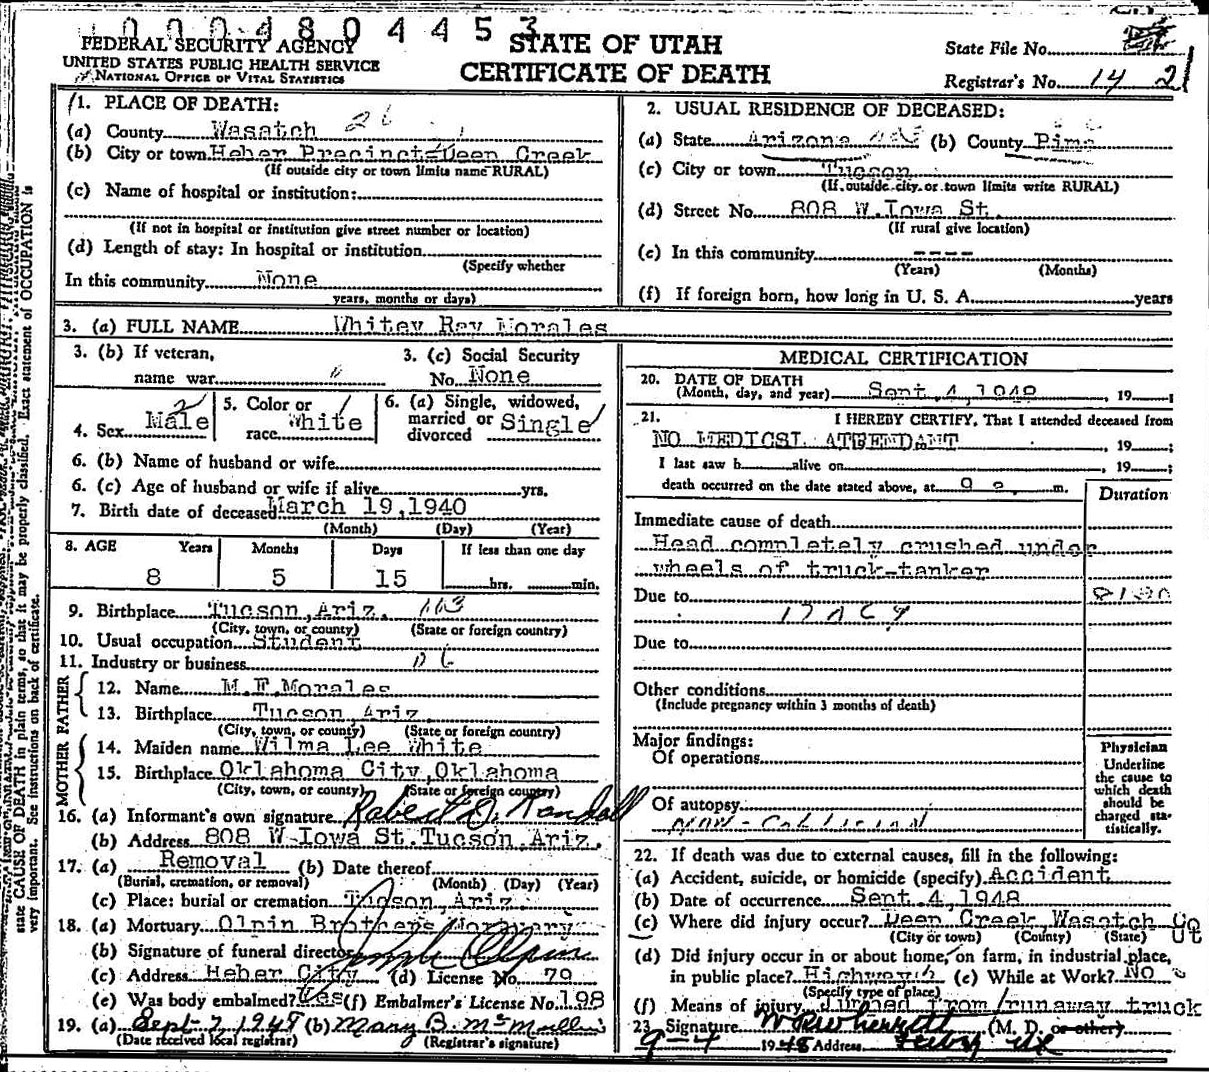 0004804453
FEDERAL SECURITY AGENCY
UNITED STATES PUBLIC HEALTH SERVICE
NATIONAL OFFICE OF VITAL STATISTICS
STATE OF UTAH
CERTIFICATE OF DEATH
State File No.
Registrar's No. 14 2
1. PLACE OF DEATH:
(a) County Wasatch 26
(b) City or town Heber Precinct-Deer Creek
(If outside city or town limits name RURAL)
(c) Name of hospital or institution:
(If not in hospital or institution give street number or location)
(d) Length of stay: In hospital or institution
(Specify whether
In this community None
years, months or days)
2. USUAL RESIDENCE OF DECEASED:
(a) State Arizona (b) County Pima
(c) City or town Tucson
(If outside city or town limits write RURAL)
(d) Street No. 808 W.Iowa St.
(If rural give location)
(e) In this community ----
(Years) (Months)
(f) If foreign born, how long in U. S. A. years
3. (a) FULL NAME Whitey Ray Morales
3. (b) If veteran,
name war
3. (c) Social Security
No. None
4. Sex Male
5. Color or
race White
6. (a) Single, widowed,
married or
divorced Single
6. (b) Name of husband or wife
6. (c) Age of husband or wife if alive yrs.
7. Birth date of deceased March 19,1940
(Month) (Day) (Year)
8. AGE Years Months Days If less than one day
8 5 15 hrs. min.
9. Birthplace Tucson,Ariz.
(City, town, or county) (State or foreign country)
10. Usual occupation Student
11. Industry or business
FATHER
12. Name M.F.Morales
13. Birthplace Tucson,Ariz.
(City, town, or county) (State or foreign country)
MOTHER
14. Maiden name Wilma Lee White
15. Birthplace Oklahoma City,Oklahoma
(City, town, or county) (State or foreign country)
16. (a) Informant's own signature Robert D. Randall
(b) Address 808 W-Iowa St.Tucson,Ariz.
17. (a) Removal (b) Date thereof
(Burial, cremation, or removal) (Month) (Day) (Year)
(c) Place: burial or cremation Tucson,Ariz.
18. (a) Mortuary Olpin Brothers Mortuary
(b) Signature of funeral director
(c) Address Heber City (d) License No. 79
(e) Was body embalmed? Yes (f) Embalmer's License No. 198
19. (a) Sept 7 1948 (b) Mary B. McMullin
(Date received local registrar) (Registrar's signature)
MEDICAL CERTIFICATION
20. DATE OF DEATH
(Month, day, and year) Sept.4,1948 , 19 ;
21. I HEREBY CERTIFY, That I attended deceased from
NO MEDICSL ATRENDANT , 19 ;
I last saw h alive on , 19 ;
death occurred on the date stated above, at 9 a. m.
Duration
Immediate cause of death
Head completely crushed under
wheels of truck-tanker
Due to
Due to
Other conditions
(Include pregnancy within 3 months of death)
Major findings:
Of operations
Of autopsy
NON-COLLISION
Physician
Underline
the cause to
which death
should be
charged sta-
tistically.
22. If death was due to external causes, fill in the following:
(a) Accident, suicide, or homicide (specify) Accident
(b) Date of occurrence Sept.4,1948
(c) Where did injury occur? Deer Creek,Wasatch Co
Ut
(City or town) (County) (State)
(d) Did injury occur in or about home, on farm, in industrial place,
in public place? Highway (e) While at Work? No
(Specify type of place)
(f) Means of injury Jumped from runaway truck
23. Signature (M. D. or other)
9-4 1948 Address
state CAUSE OF DEATH in plain terms, so that it may be properly classified. Exact statement of OCCUPATION is
very important. See instructions on back of certificate.